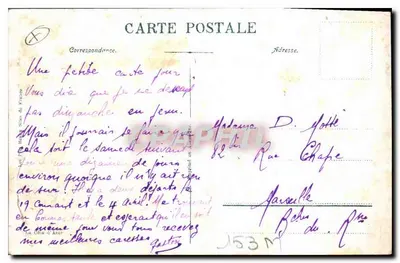 CARTE POSTALE
Correspondance.
Adresse.
Une petite carte pour
vous dire que je ne
pas dimanche en perm.
Mais il pourrait se faire que
cela soit le samedi suivant
une dizaine de jours
environ quoique il n'y ait rien
de sur! Il y a dans départs le
19 courant et le 4 avril. Me
en bonne santé et esperant qu'il en soit
de même pour vous tous recevez
mes meilleures caresses Gaston
Madame D. Motte
12 Rue Chape
Marseille
Bches du Rhne
153M